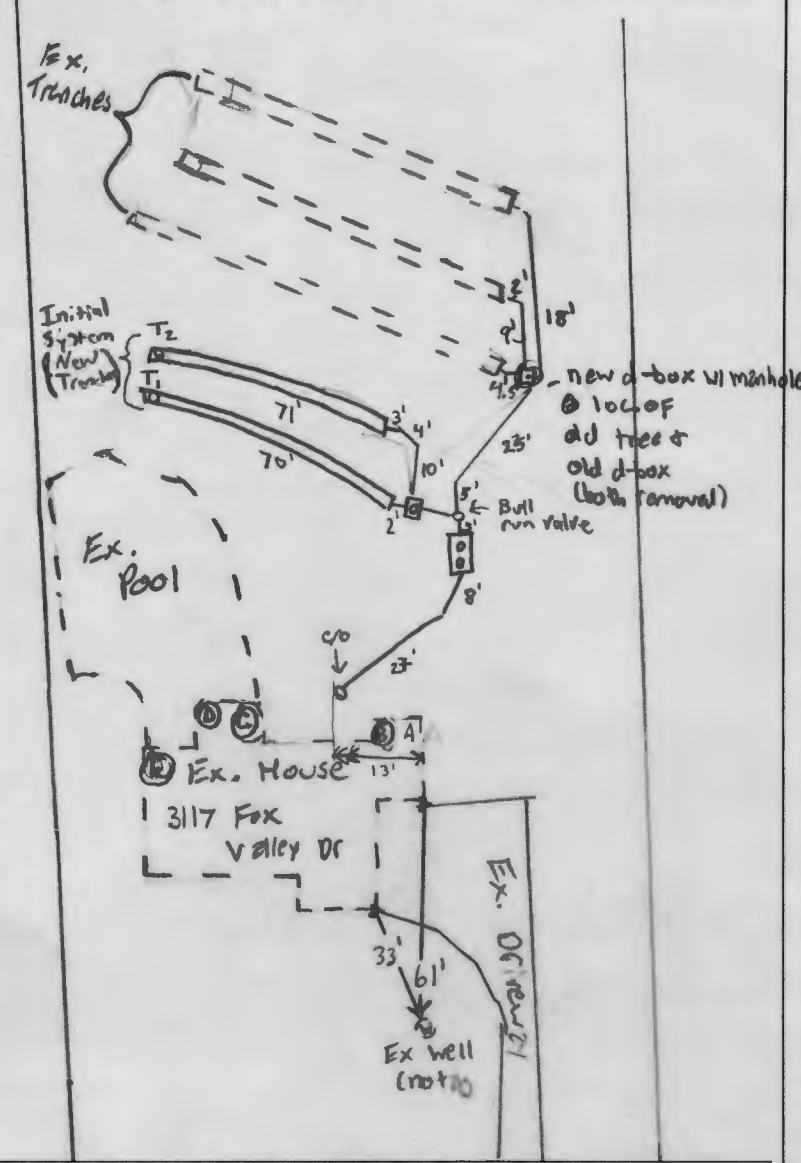 Ex.
Trenches
2'
18'
9'
4.5'
Initial
System
(New
T2
T1
71'
70'
3'
4'
10'
2'
new d-box w/ manhole
@ loc. of
old tree &
old d-box
(both removal)
25'
5'
Bull
run valve
8'
27'
c/o
Ex.
Pool
D
C
B
A
E
Ex. House
13'
3117 Fox
Valley Dr
33'
61'
Ex well
(not
Ex.